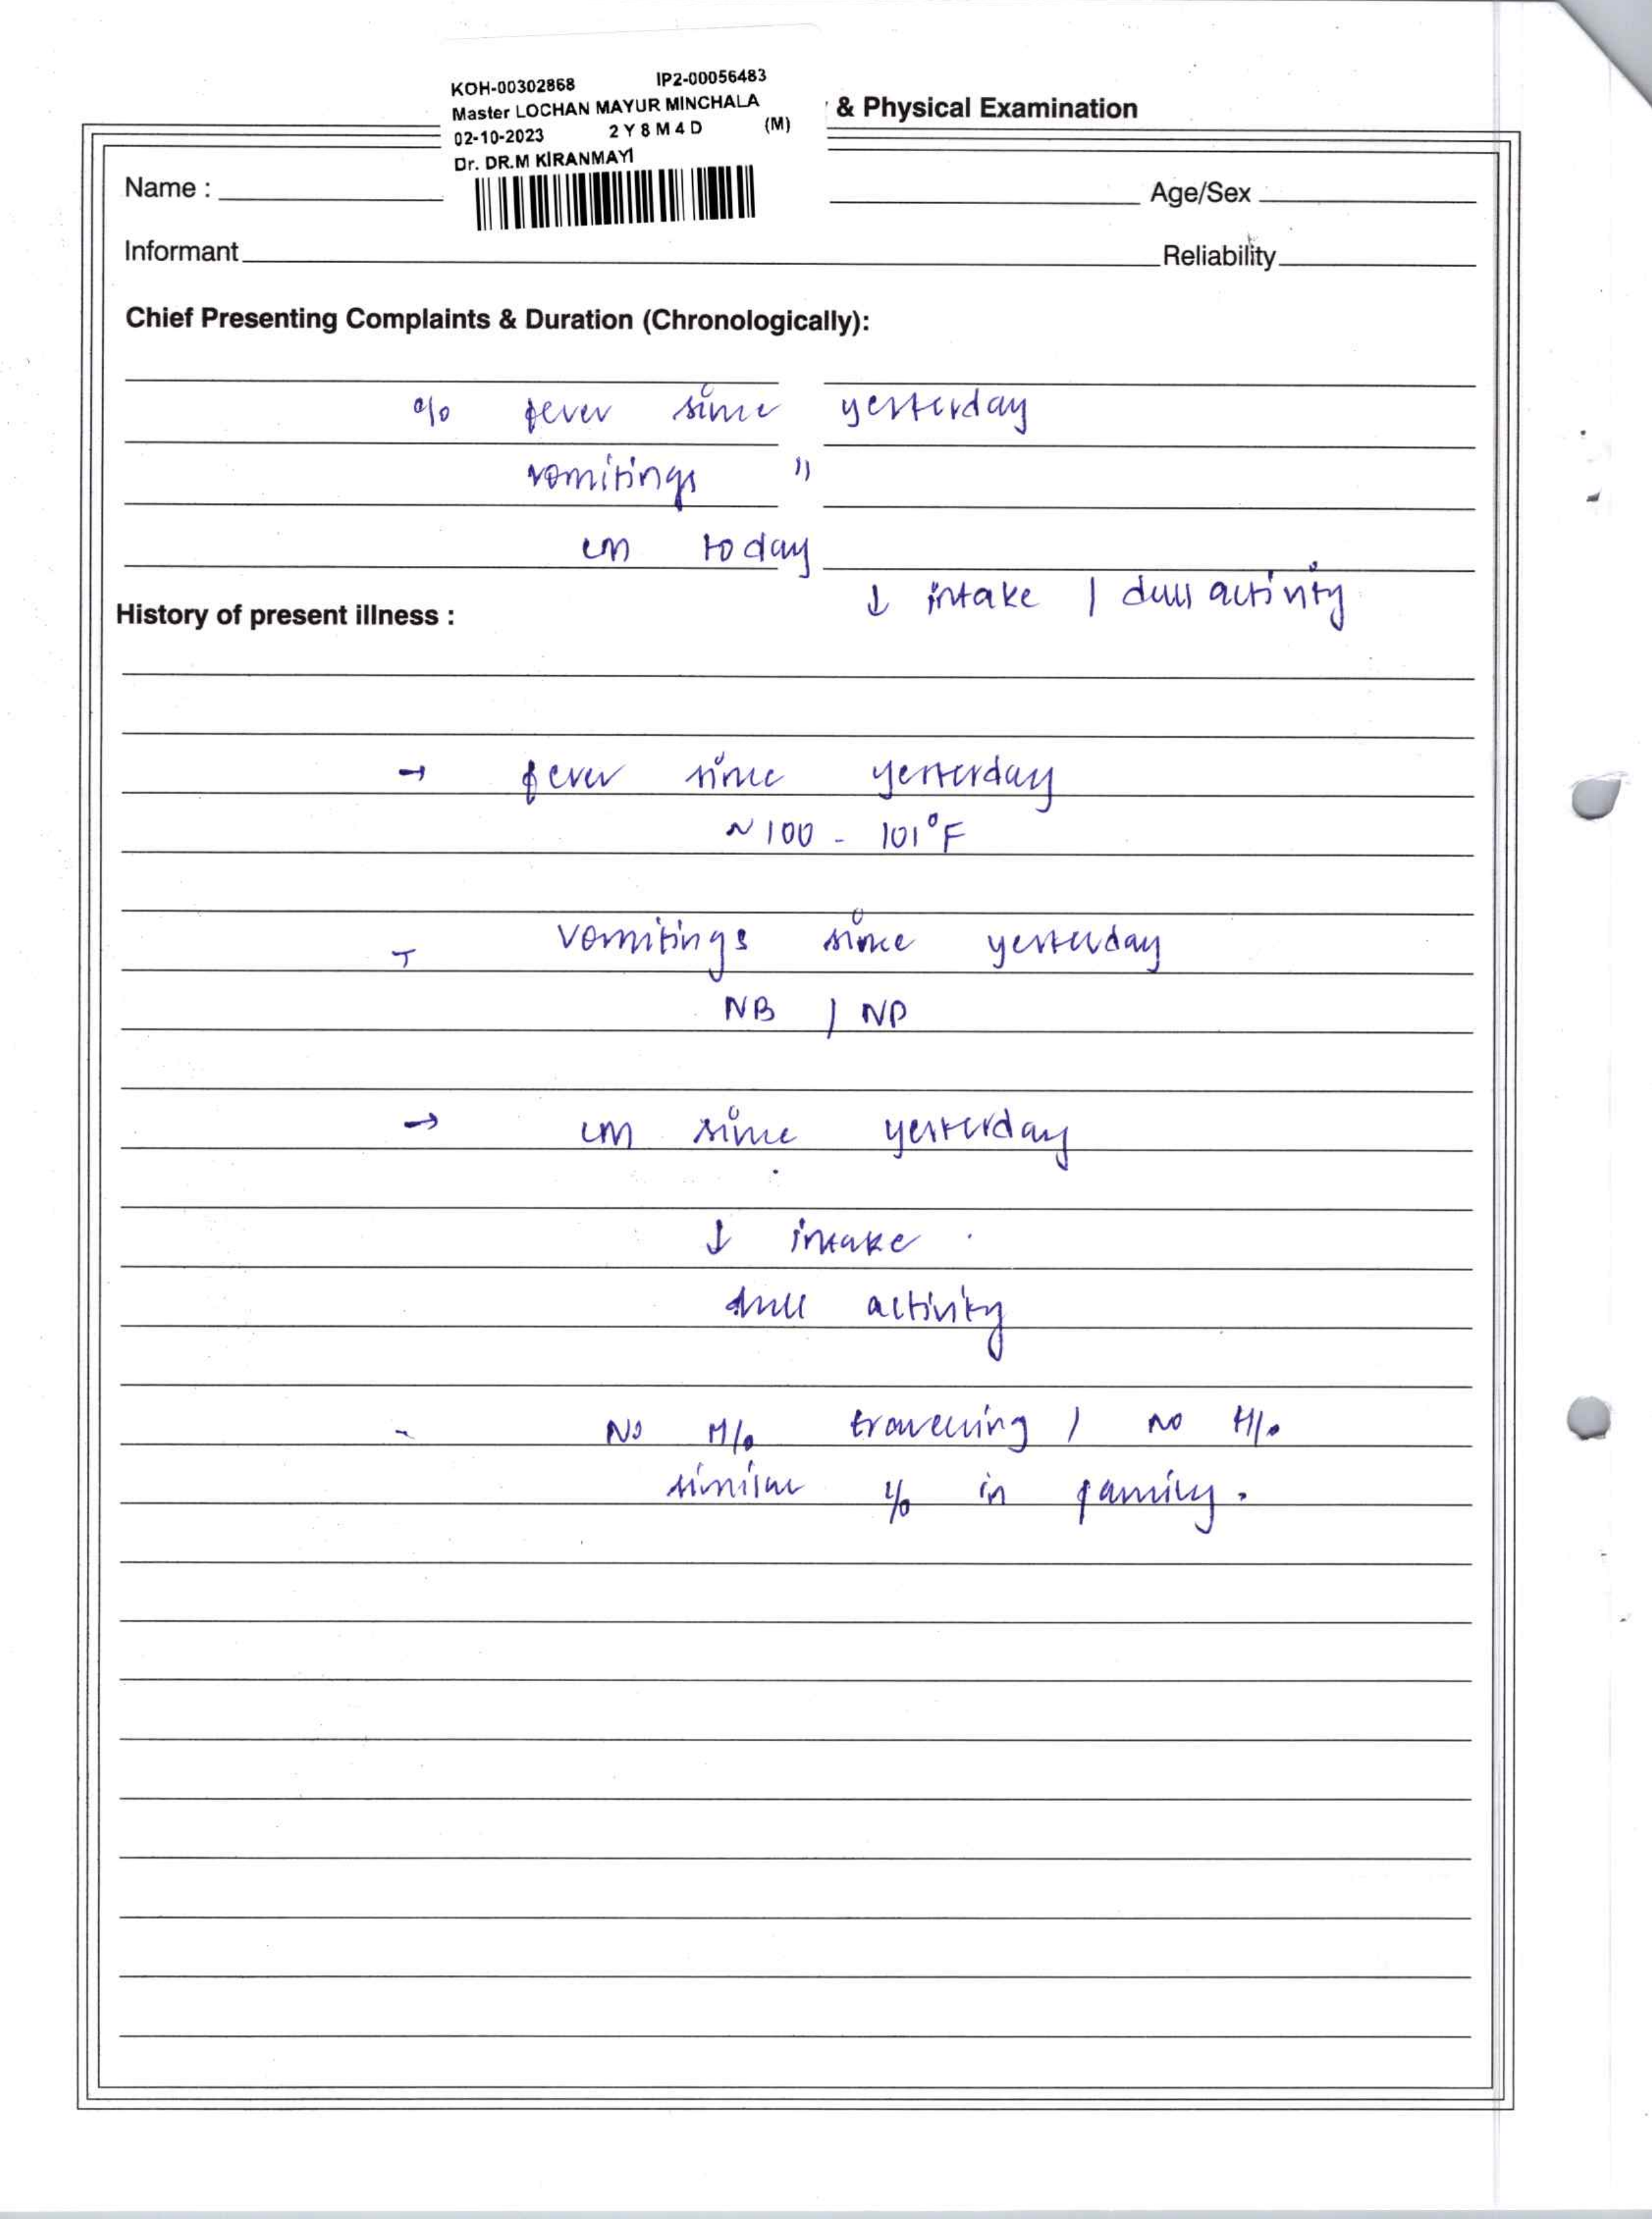 KOH-00302868 IP2-00056483
Master LOCHAN MAYUR MINCHALA
02-10-2023 2Y8M4D (M)
Dr. DR.M KIRANMAYI
& Physical Examination
Name :
Age/Sex
Informant
Reliability
Chief Presenting Complaints & Duration (Chronologically):
c/o fever since yesterday
vomitings "
today
↓ intake / dull activity
History of present illness :
→ fever since yesterday
~ 100 - 101°F
vomitings since yesterday
NB / NP
→ since yesterday
↓ intake .
dull activity
- No H/o travelling / no H/o
similar c/o in family.